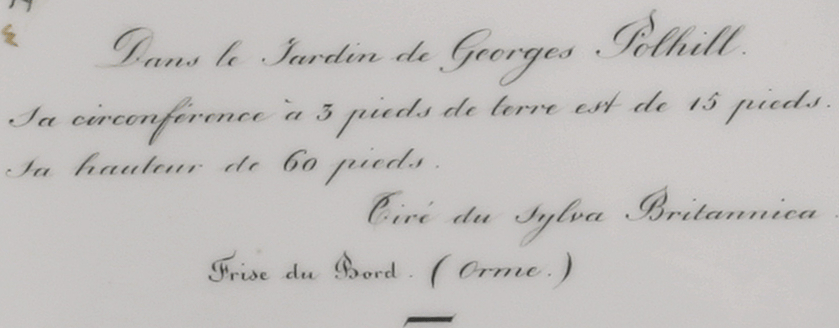 Dans le Jardin de Georges Polhill.
Sa circonférence à 3 pieds de terre est de 15 pieds.
Sa hauteur de 60 pieds.
Tiré du Sylva Britannica.
Frise du Bord. (Orme.)